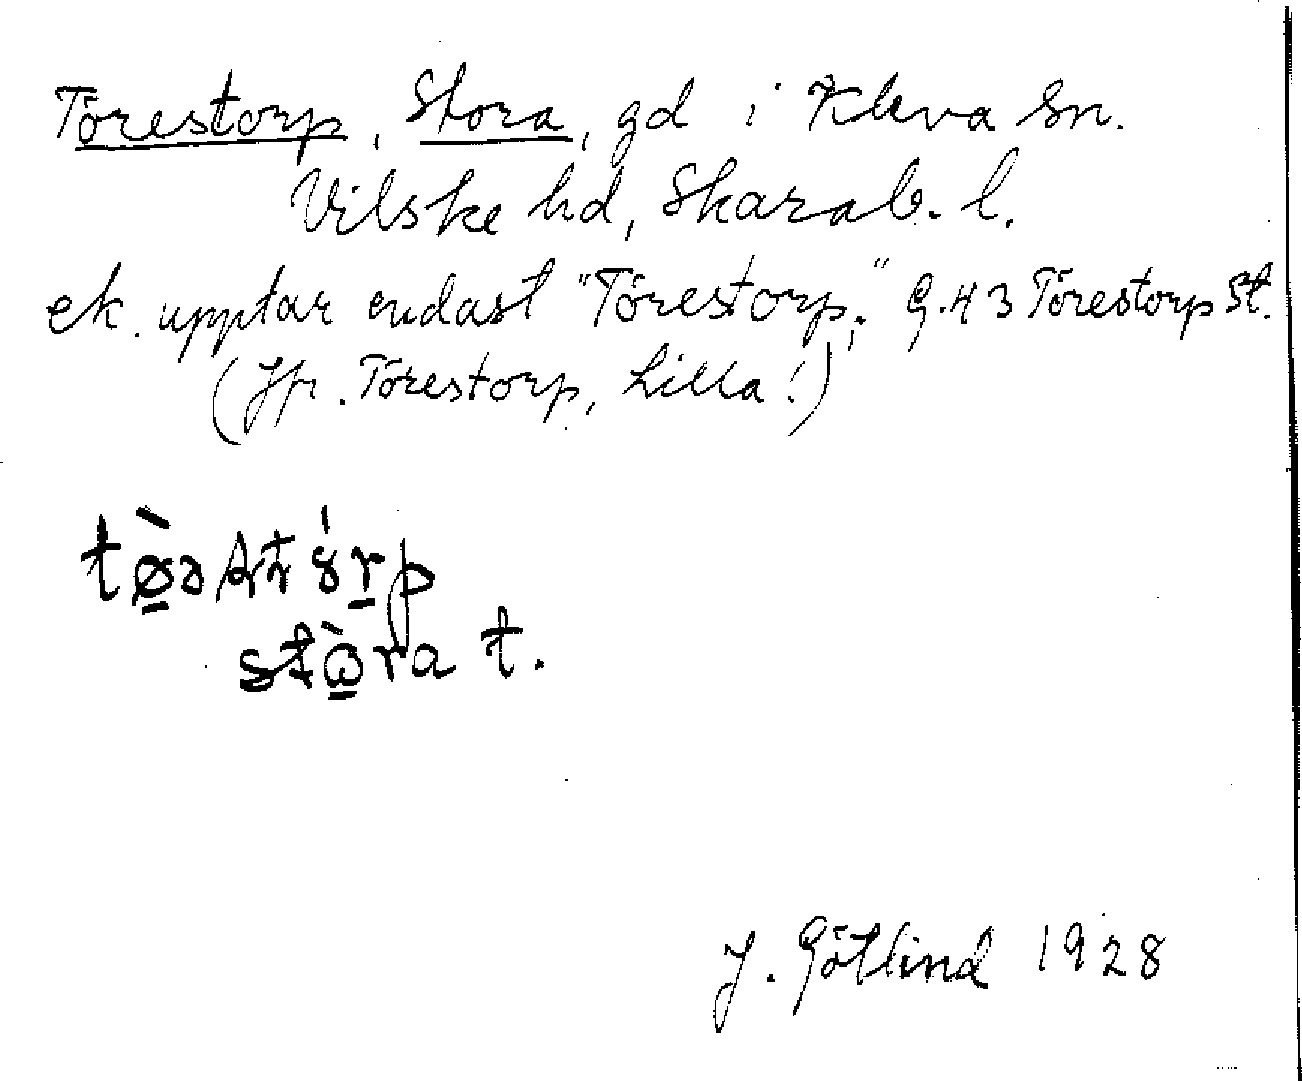 Törestorp, Stora, gd i Kleva Sn.
Vilske hd, Skarab. l.
ek. upptar endast "Törestorp;" G.43 Törestorp St.
(Jfr. Törestorp, Lilla!)
stὼra t.
J. Götlind 1928